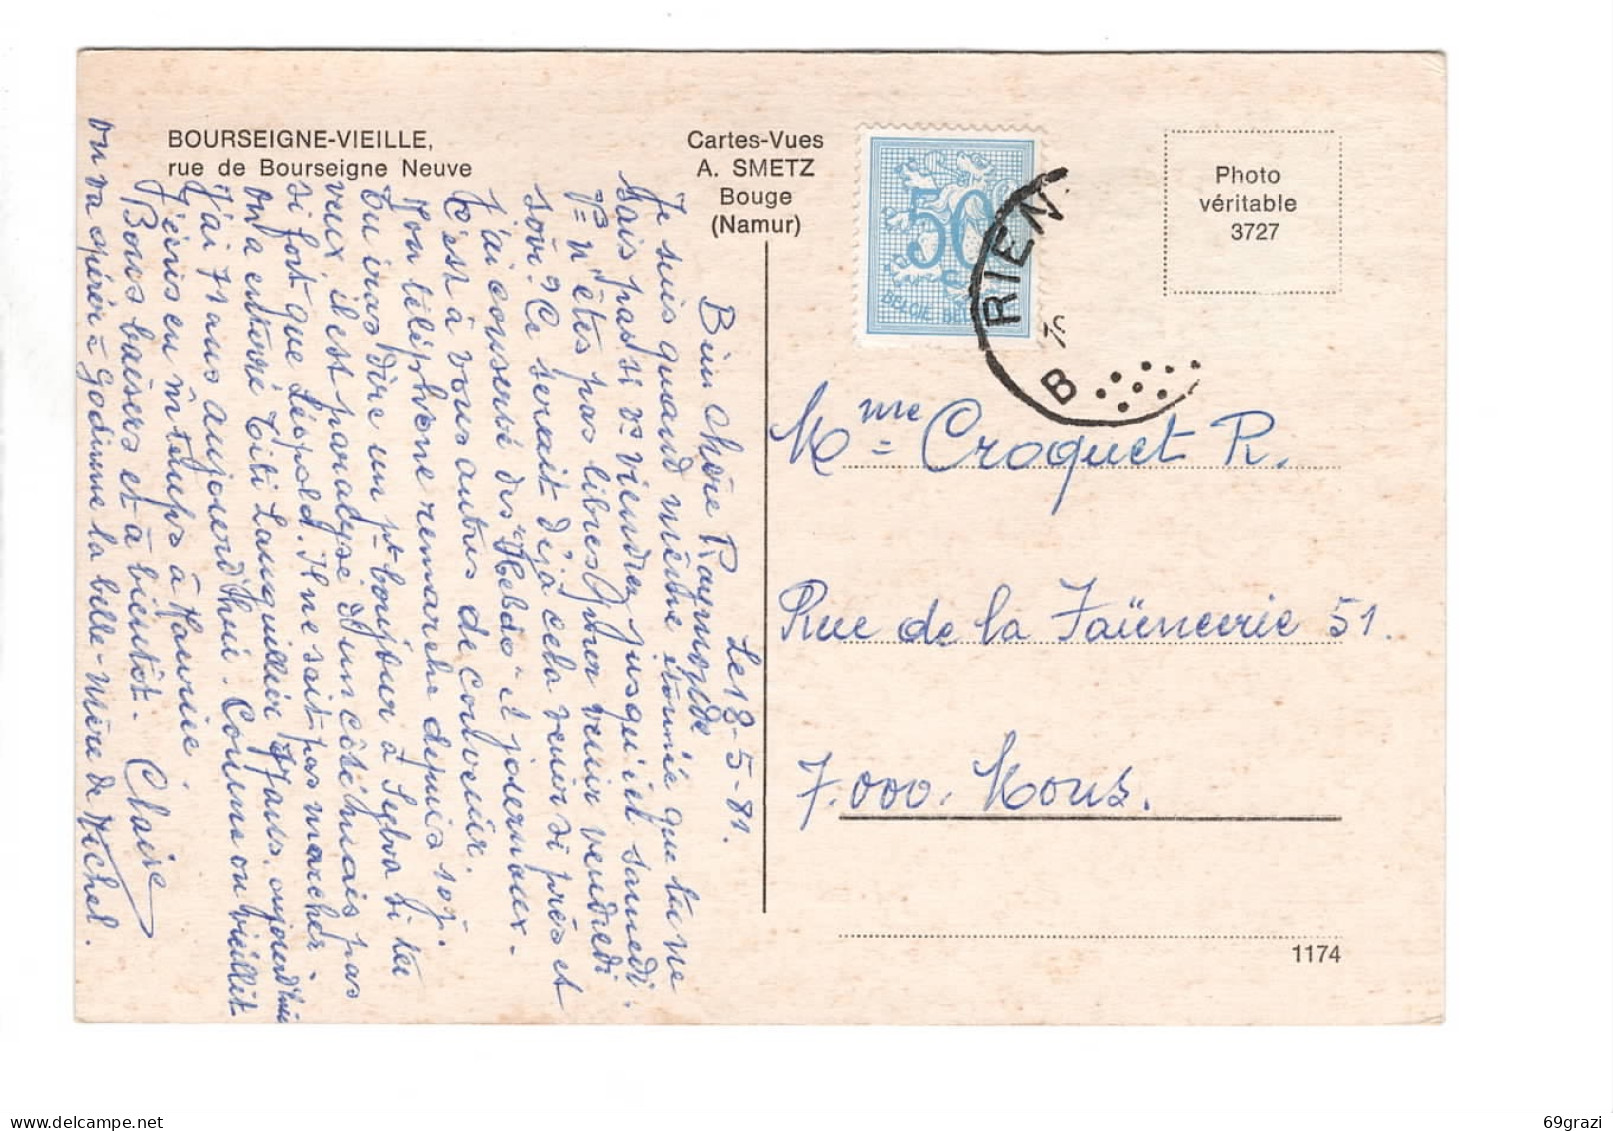 BOURSEIGNE-VIEILLE,
rue de Bourseigne Neuve
Cartes-Vues
A. SMETZ
Bouge
(Namur)
BELGIE BEL
RIEN
B
Photo
véritable
3727
Mme Croquet R.
Rue de la Faïencerie 51.
7.000. Mons.
1174
Le 18-5-81.
Bien Chère Raymonde
Je suis quand même étonnée que tu ne
sais pas si vs viendrez jusqu'ici samedi.
n'êtes pas libres pour venir vendredi
soir? Ce serait déjà cela venir si près et
j'ai conservé des "Hebdo" et journaux.
C'est à vous autres de convenir.
Mon téléphone remarche depuis
Tu iras dire un pt bonjour à Sylva si tu
veux, il est paralysé d'un côté mais pas
si fort que Léopold. Il ne sait pas marcher.
On a enterré Titi Lauquillier 77 ans. aujourd'hui
J'ai 71 ans aujourd'hui. Comme on vieillit
J'écris en m temps à Maurice.
Bons baisers et à bientôt. Claire
on va opérer à Godinne la belle-mère de Michel.
69grazi